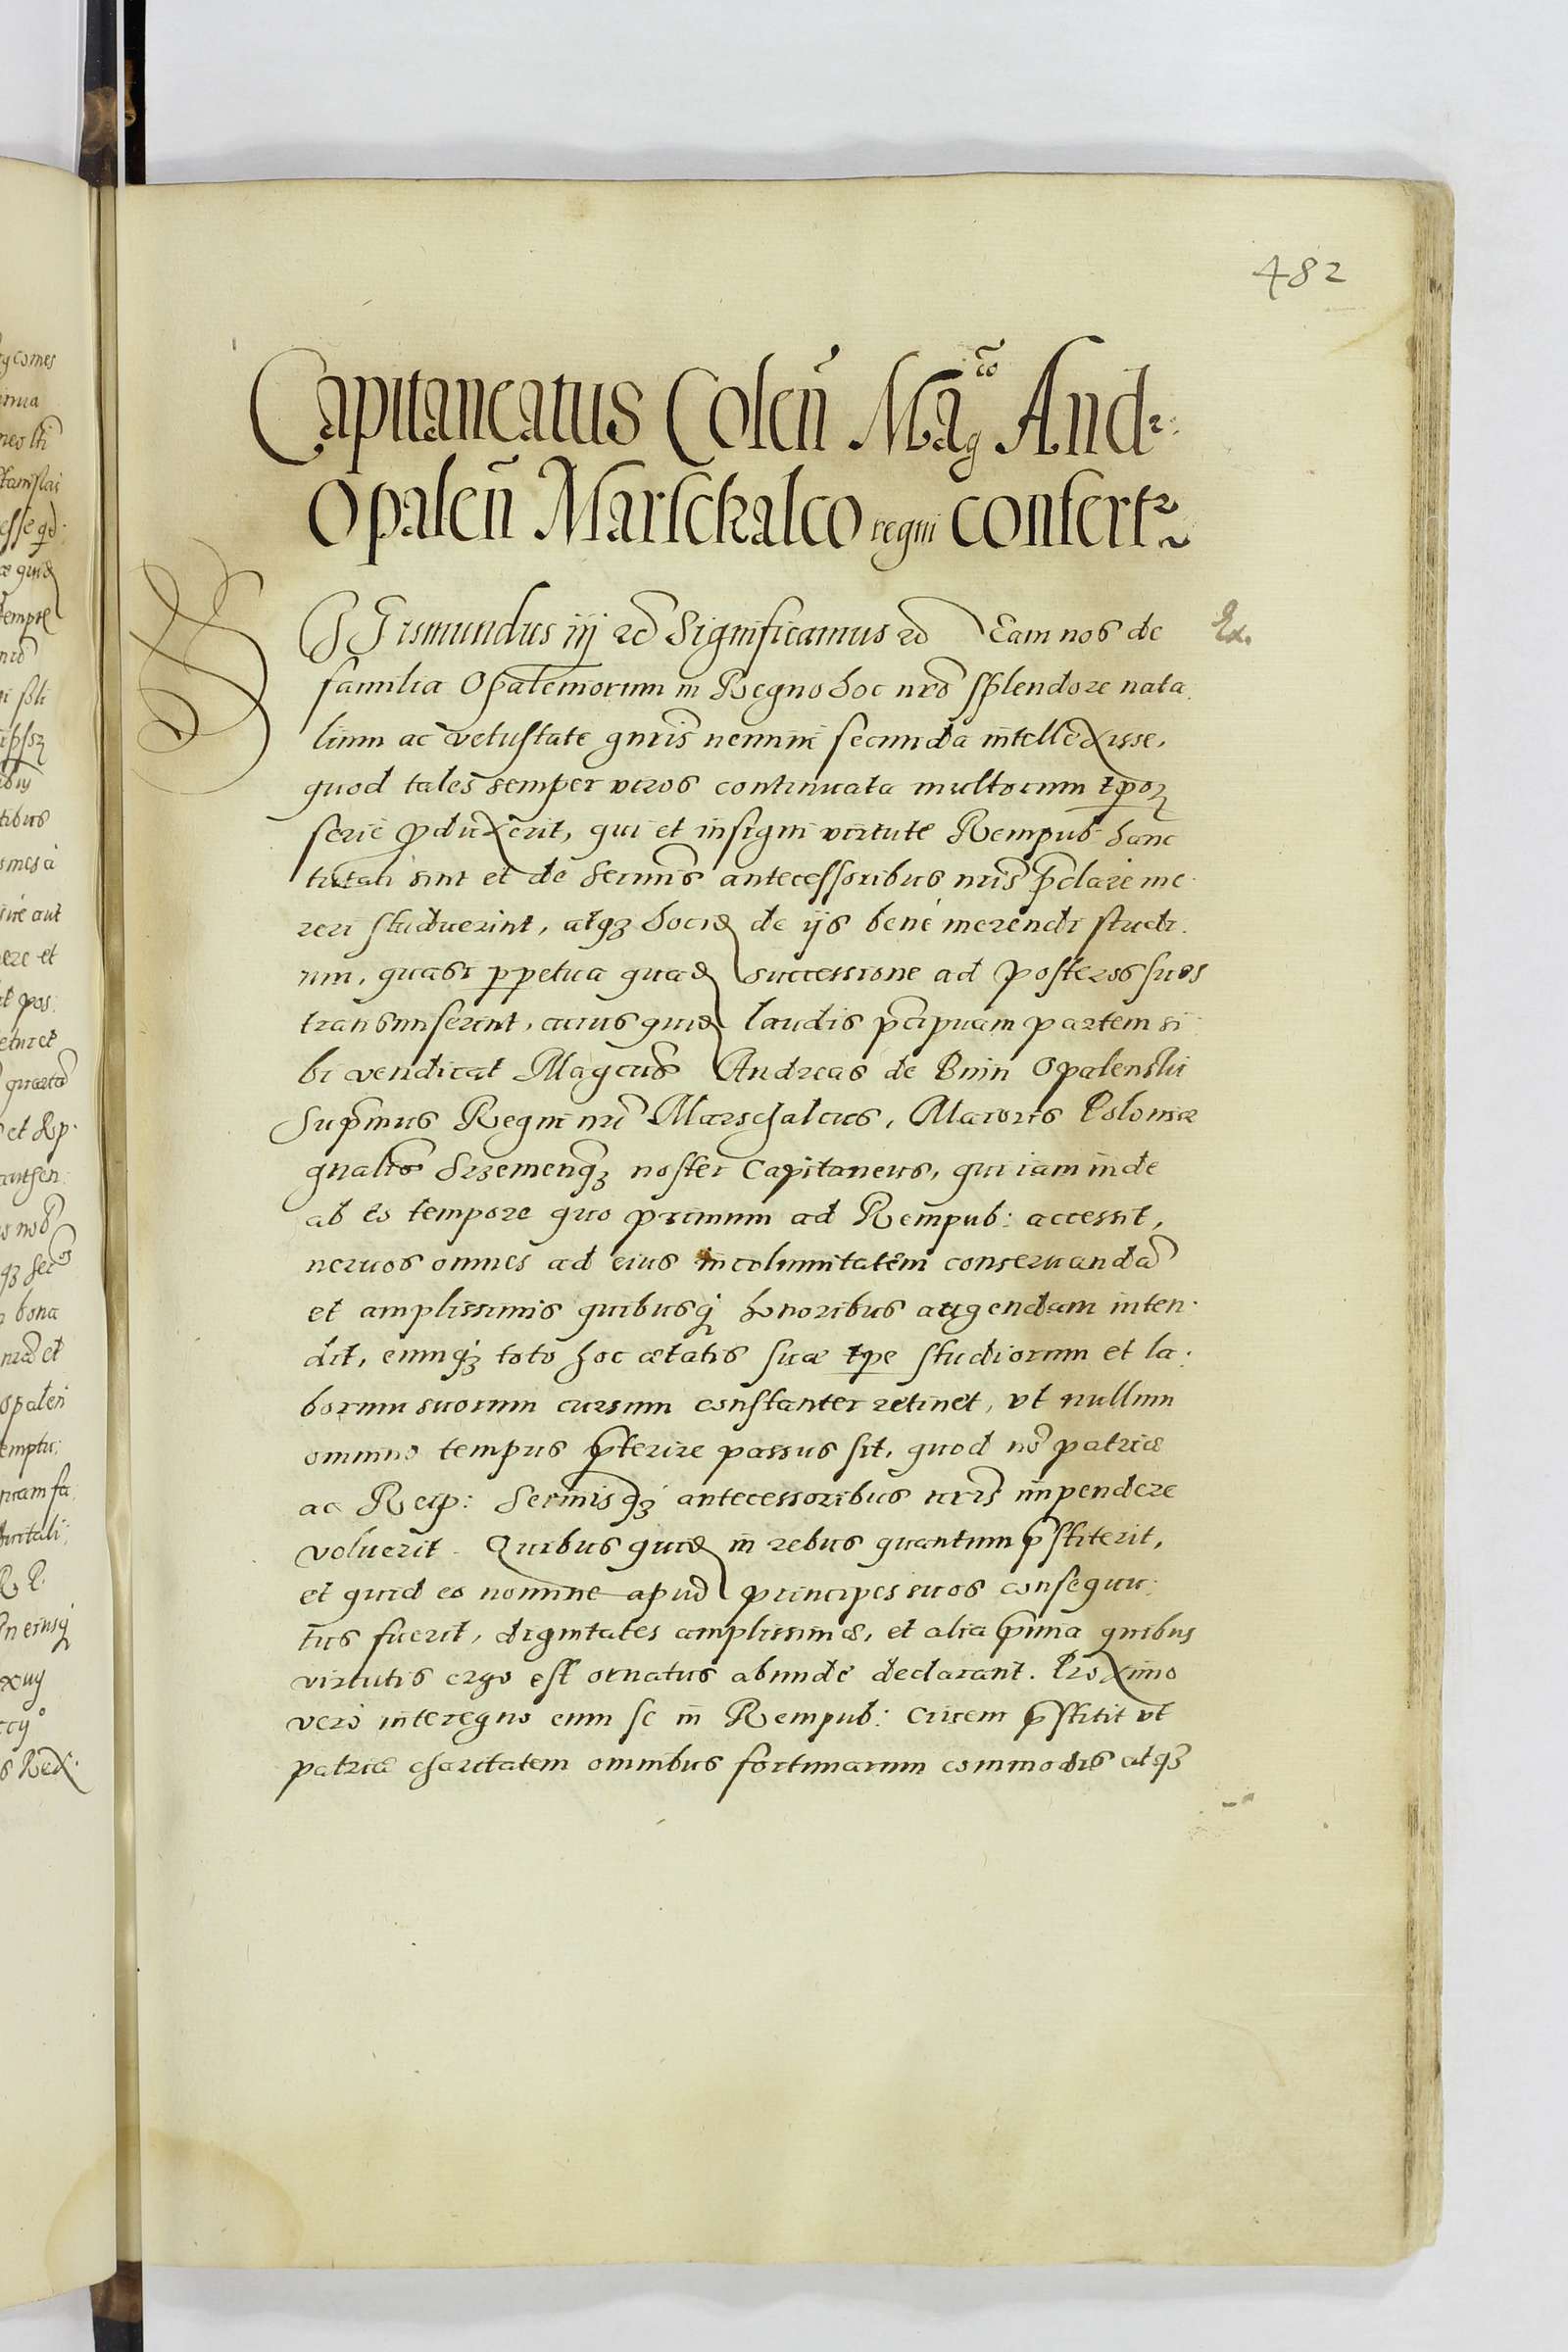 482
Capitaneatus Coleñ Mag̃co And:
Opaleñ Marschalco regni confertr
SIGismundus iij etc Significamus etc Eam nos de
familia Opaleniorum in Regno hoc nrõ splendore nata
lium ac vetustate gnris nemini secunda intellexisse,
quod tales semper viros continuata multorum tpor
serie produxerit, qui et insigni virtute Rempub: hanc
tutati sint et de Sermis antecessoribus nris pclare me
reri studuerint, atqz hocid de ijs bene merendi studi
um, quasi ppetua quad successione ad posteros suos
transmiserint, cuius quid laudis pcipuam partem si
bi vendicat Magcus Andreas de Bnin Opalenskii
Supmus Regni nri Marschalcus, Maioris Poloniæ
gnalis Srzemenqz noster Capitaneus, qui iam inde
ab eo tempore quo primum ad Rempub: accessit,
nervos omnes ad eius incolumitatem conservandã
et amplissimis quibusq honoribus augendam inten
dit, eumqz toto hoc ætatis suæ tpe studiorum et la:
borum suorum cursum constanter retinet, vt nullum
omnino tempus pterire passus sit, quod nõ patriæ
ac Reip: Sermisqz antecessoribus nris impendere
voluerit. Quibus quid in rebus quantum pstiterit,
et quid eo nomine apud principes suos consequu:
tus fuerit, dignitates amplissimæ, et alia pmia quibus
virtutis ergo est ornatus abunde declarant. Proximo
vero interegno eum se in Rempub: civem pstitit vt
patriæ charitatem omnibus fortunarum commodis atqz